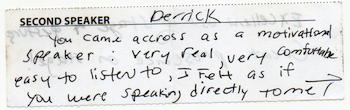 SECOND SPEAKER Derrick
You came accross as a motivational
speaker: very real, very comfortable
easy to listen to, I felt as if
you were speaking directly to me!